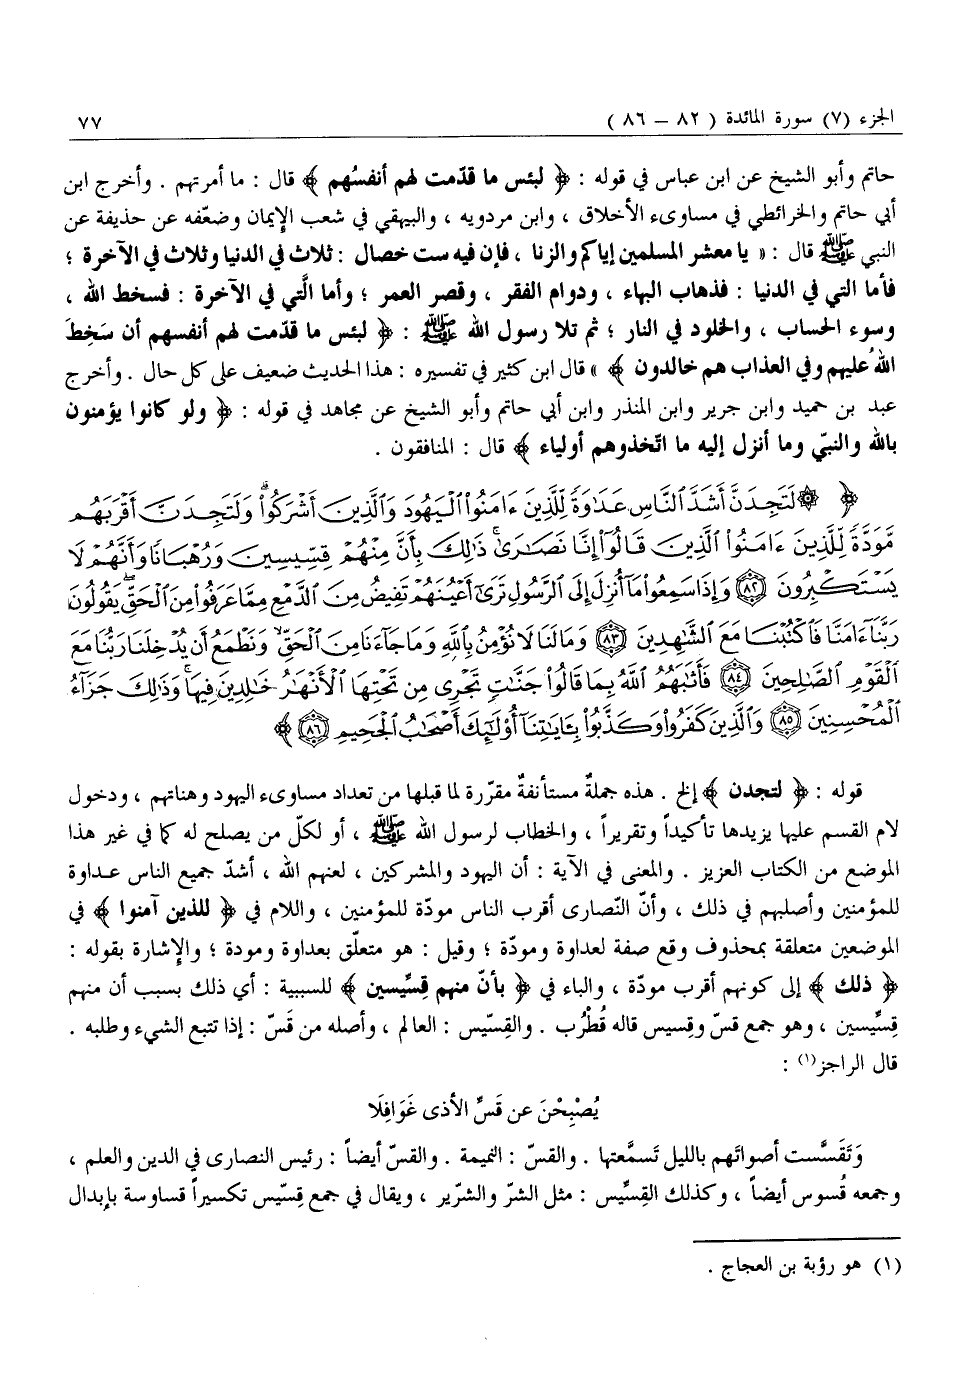 الجزء (٧) سورة المائدة ( ٨٢ – ٨٦ ) ٧٧
حاتم وأبو الشيخ عن ابن عباس في قوله : ﴿ لبئس ما قدّمت لهم أنفسُهم ﴾ قال : ما أمرتهم . وأخرج ابن
أبي حاتم والخرائطي في مساوىء الأخلاق ، وابن مردويه ، والبيهقي في شعب الإيمان وضعّفه عن حذيفة عن
النبي ﷺ قال : « يا معشر المسلمين إياكم والزنا ، فإن فيه ست خصال : ثلاث في الدنيا وثلاث في الآخرة ؛
فأما التي في الدنيا : فذهاب البهاء ، ودوام الفقر ، وقصر العمر ؛ وأما الَّتي في الآخرة : فسخط الله ،
وسوء الحساب ، والخلود في النار ؛ ثم تلا رسول الله ﷺ : ﴿ لبئس ما قدّمت لهم أنفسهم أن سَخِطَ
اللهُ عليهم وفي العذاب هم خالدون ﴾ » قال ابن كثير في تفسيره : هذا الحديث ضعيف على كل حال . وأخرج
عبد بن حميد وابن جرير وابن المنذر وابن أبي حاتم وأبو الشيخ عن مجاهد في قوله : ﴿ ولو كانوا يؤمنون
بالله والنبيّ وما أنزل إليه ما اتّخذوهم أولياء ﴾ قال : المنافقون .
﴿ ۞ لَتَجِدَنَّ أَشَدَّ ٱلنَّاسِ عَدَٰوَةً لِّلَّذِينَ ءَامَنُوا۟ ٱلْيَهُودَ وَٱلَّذِينَ أَشْرَكُوا۟ۖ وَلَتَجِدَنَّ أَقْرَبَهُم
مَّوَدَّةً لِّلَّذِينَ ءَامَنُوا۟ ٱلَّذِينَ قَالُوٓا۟ إِنَّا نَصَٰرَىٰۚ ذَٰلِكَ بِأَنَّ مِنْهُمْ قِسِّيسِينَ وَرُهْبَانًا وَأَنَّهُمْ لَا
يَسْتَكْبِرُونَ ٨٢ وَإِذَا سَمِعُوا۟ مَآ أُنزِلَ إِلَى ٱلرَّسُولِ تَرَىٰٓ أَعْيُنَهُمْ تَفِيضُ مِنَ ٱلدَّمْعِ مِمَّا عَرَفُوا۟ مِنَ ٱلْحَقِّۖ يَقُولُونَ
رَبَّنَآ ءَامَنَّا فَٱكْتُبْنَا مَعَ ٱلشَّٰهِدِينَ ٨٣ وَمَا لَنَا لَا نُؤْمِنُ بِٱللَّهِ وَمَا جَآءَنَا مِنَ ٱلْحَقِّ وَنَطْمَعُ أَن يُدْخِلَنَا رَبُّنَا مَعَ
ٱلْقَوْمِ ٱلصَّٰلِحِينَ ٨٤ فَأَثَٰبَهُمُ ٱللَّهُ بِمَا قَالُوا۟ جَنَّٰتٍ تَجْرِى مِن تَحْتِهَا ٱلْأَنْهَٰرُ خَٰلِدِينَ فِيهَاۚ وَذَٰلِكَ جَزَآءُ
ٱلْمُحْسِنِينَ ٨٥ وَٱلَّذِينَ كَفَرُوا۟ وَكَذَّبُوا۟ بِـَٔايَٰتِنَآ أُو۟لَٰٓئِكَ أَصْحَٰبُ ٱلْجَحِيمِ ٨٦ ﴾
قوله : ﴿ لتجدن ﴾ إلخ . هذه جملةٌ مستأنفةٌ مقرّرة لما قبلها من تعداد مساوىء اليهود وهناتهم ، ودخول
لام القسم عليها يزيدها تأكيداً وتقريراً ، والخطاب لرسول الله ﷺ ، أو لكلّ من يصلح له كما في غير هذا
الموضع من الكتاب العزيز . والمعنى في الآية : أن اليهود والمشركين ، لعنهم الله ، أشدّ جميع الناس عداوة
للمؤمنين وأصلبهم في ذلك ، وأنّ النّصارى أقرب الناس مودّة للمؤمنين ، واللام في ﴿ للذين آمنوا ﴾ في
الموضعين متعلقة بمحذوف وقع صفة لعداوة ومودّة ؛ وقيل : هو متعلّق بعداوة ومودة ؛ والإشارة بقوله :
﴿ ذلك ﴾ إلى كونهم أقرب مودّة ، والباء في ﴿ بأنّ منهم قِسِّيسين ﴾ للسببية : أي ذلك بسبب أن منهم
قِسِّيسين ، وهو جمع قسّ وقسيس قاله قُطْرُب . والقِسّيس : العالم ، وأصله من قَسّ : إذا تتبع الشيء وطلبه .
قال الراجز(١) :
يُصْبِحْنَ عن قَسِّ الأذى غَوَافِلَا
وَتَقَسَّست أصواتَهم بالليل تَسمَّعتها . والقسّ : النميمة . والقسّ أيضاً : رئيس النصارى في الدين والعلم ،
وجمعه قُسوس أيضاً ، وكذلك القِسِّيس : مثل الشرّ والشرّير ، ويقال في جمع قِسّيس تكسيراً قساوسة بإبدال
(١) هو رؤبة بن العجاج .